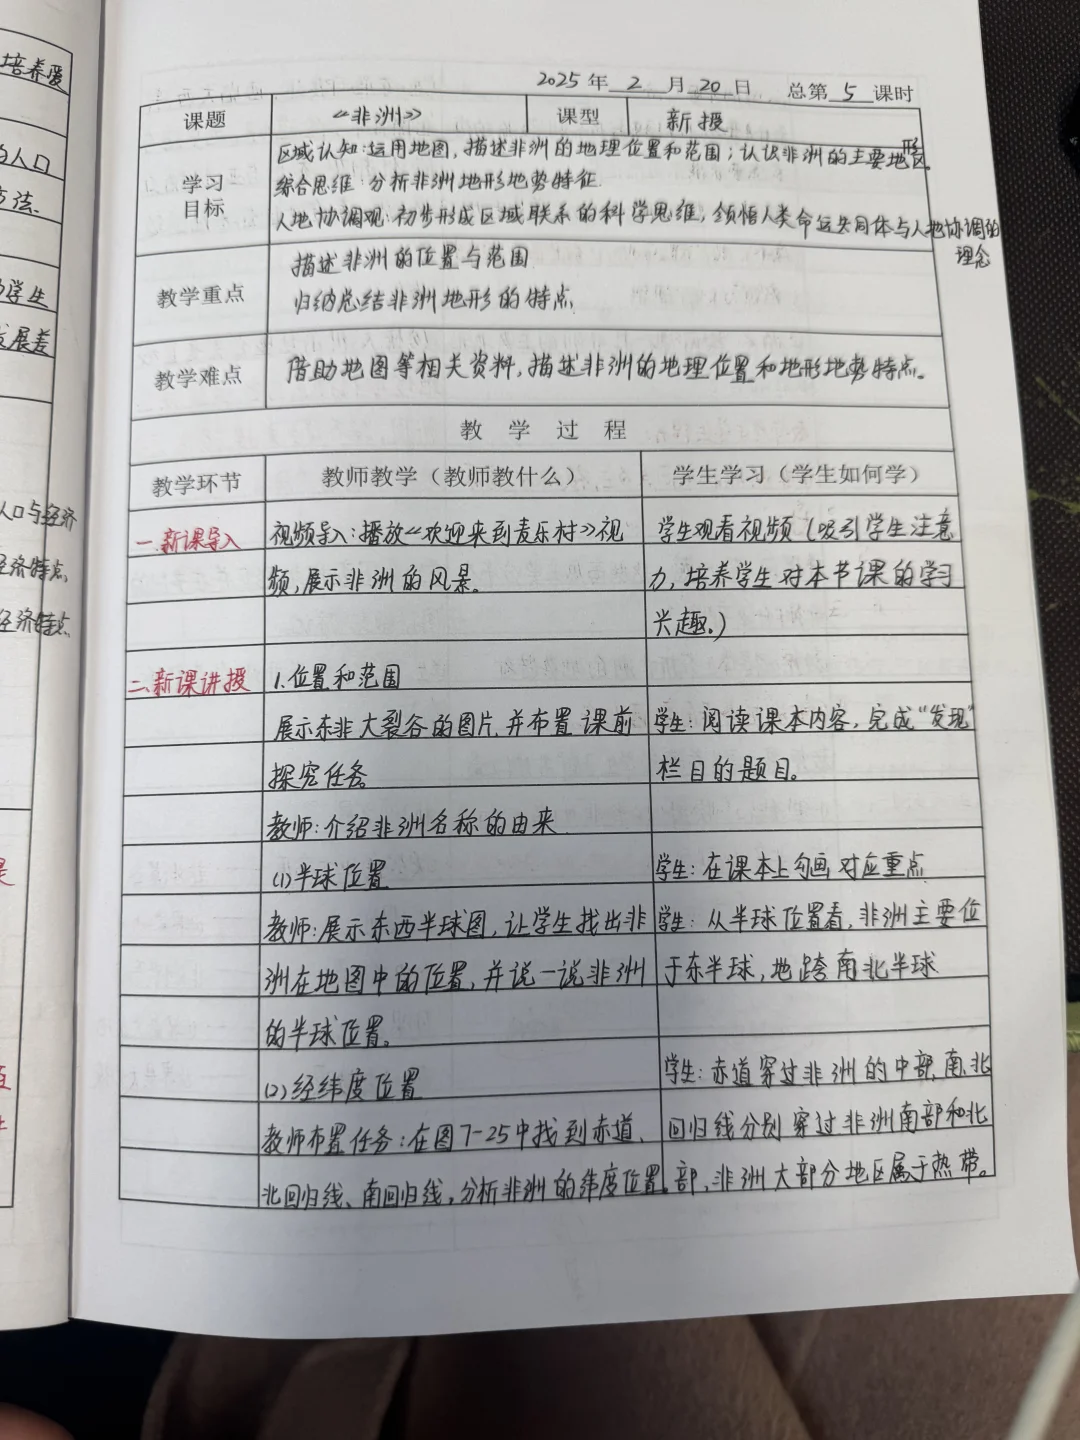 培养爱
人口
方法.
学生
发展差
人口与经济
经济特点.
经济特点.
2025年 2 月 20 日 总第 5 课时
课题 《非洲》 课型 新授
学习目标
区域认知:运用地图,描述非洲的地理位置和范围;认识非洲的主要地形区.
综合思维:分析非洲地形地势特征.
人地协调观:初步形成区域联系的科学思维,领悟人类命运共同体与人地协调的理念
教学重点
描述非洲的位置与范围
归纳总结非洲地形的特点
教学难点 借助地图等相关资料,描述非洲的地理位置和地形地势特点.
教 学 过 程
教学环节 教师教学(教师教什么) 学生学习(学生如何学)
一.新课导入 视频导入:播放《欢迎来到麦乐村》视 学生观看视频(吸引学生注意
频,展示非洲的风景. 力,培养学生对本节课的学习
兴趣.)
二.新课讲授 1.位置和范围
展示东非大裂谷的图片,并布置课前 学生:阅读课本内容,完成"发现"
探究任务 栏目的题目.
教师:介绍非洲名称的由来
(1)半球位置 学生:在课本上勾画对应重点
教师:展示东西半球图,让学生找出非 学生:从半球位置看,非洲主要位
洲在地图中的位置,并说一说非洲 于东半球,地跨南北半球
的半球位置.
(2)经纬度位置 学生:赤道穿过非洲的中部,南、北
教师布置任务:在图7-25中找到赤道、 回归线分别穿过非洲南部和北
北回归线、南回归线,分析非洲的纬度位置. 部,非洲大部分地区属于热带.